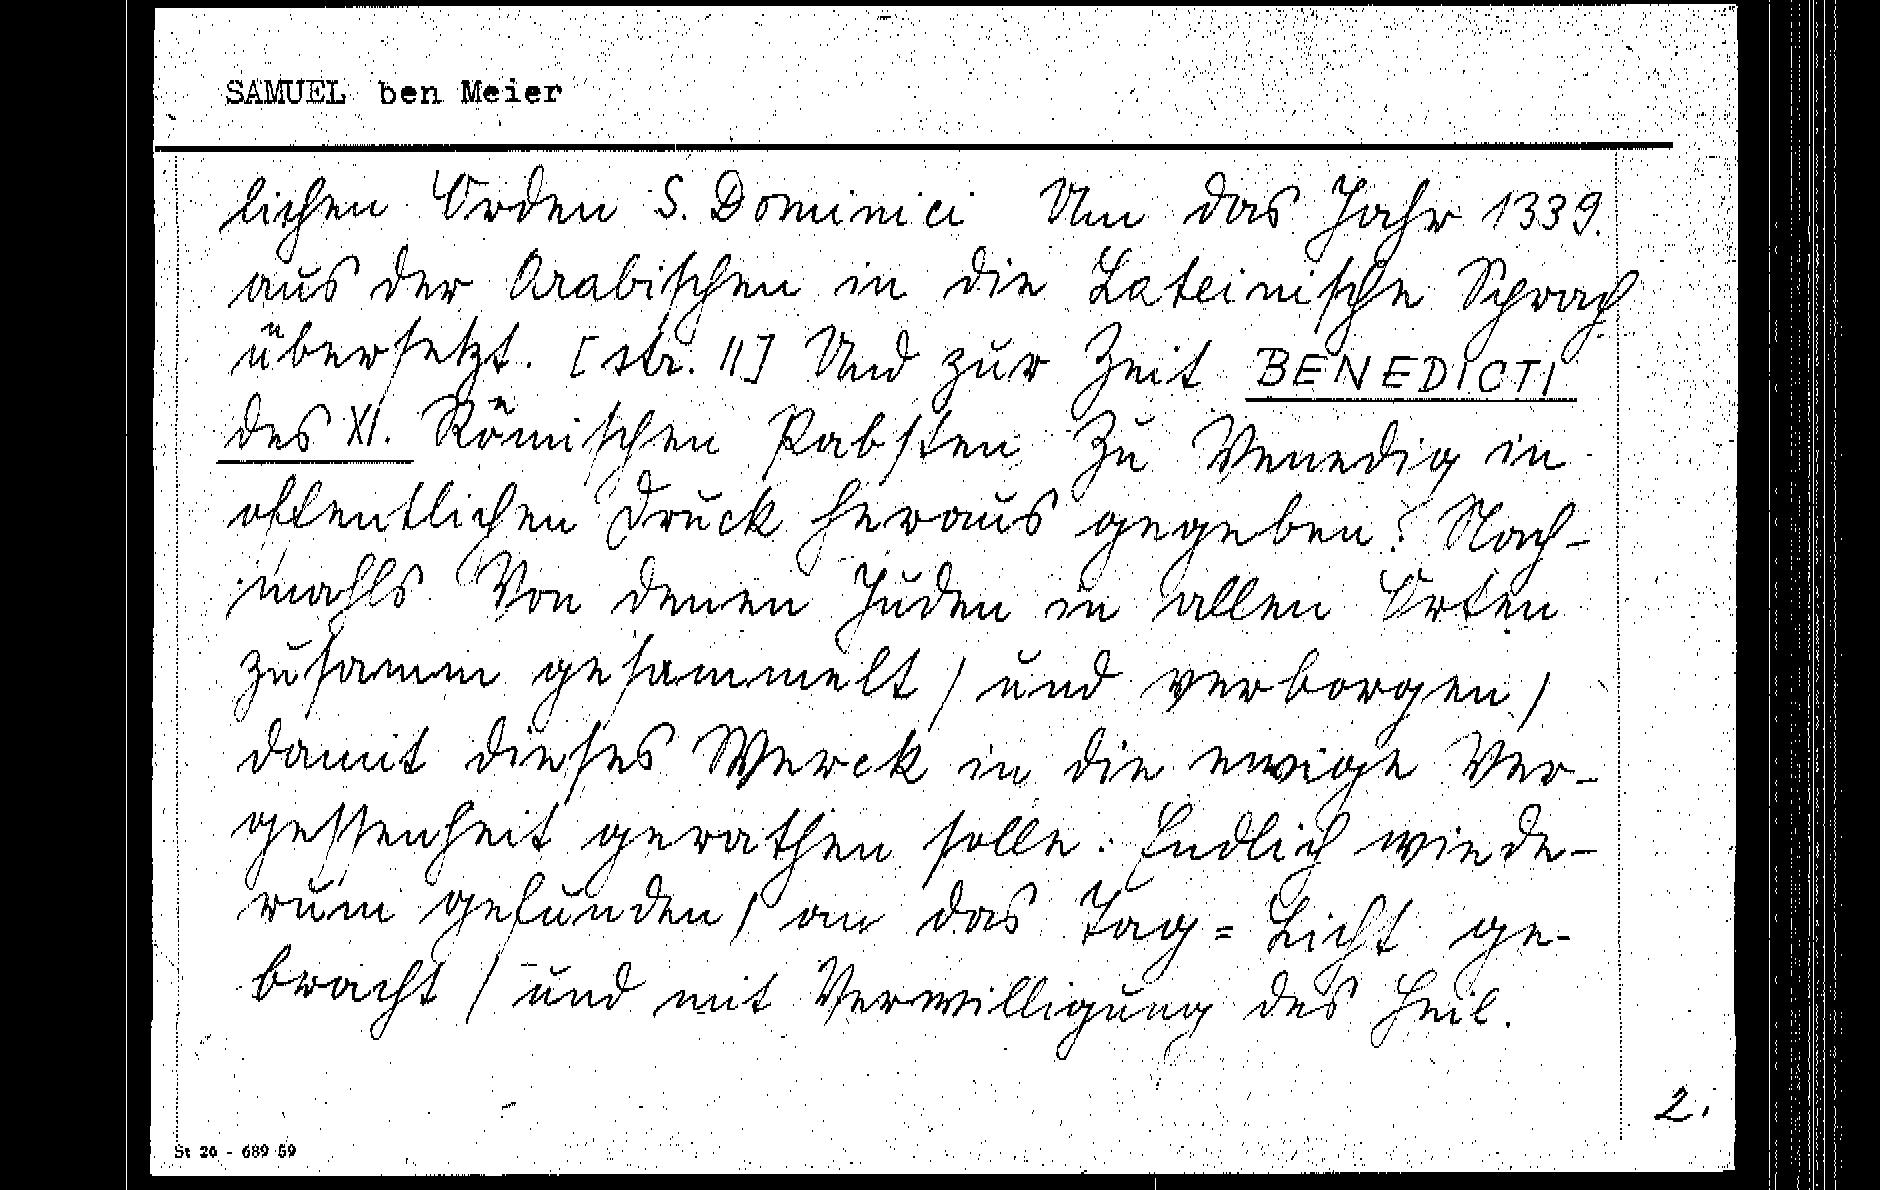 SAMUEL ben Meier
lichen Orden S. Dominici Um das Jahr 1339.
aus der Arabischen in die Lateinische Sprach
übersetzt. [str. II] Und zur Zeit BENEDICTI
des XI. Römischen Pabsten Zu Venedig in
offentlichen Druck heraus gegeben: Nach-
mahls Von denen Juden in allen Orten
zusamm gesammelt / und verborgen /
damit dieses Werck in die ewige Ver-
gessenheit gerathen solle: Endlich wiede-
rum gefunden / an das Tag = Licht ge-
bracht / und mit Verwilligung des Heil.
2.
St 20 - 689 59